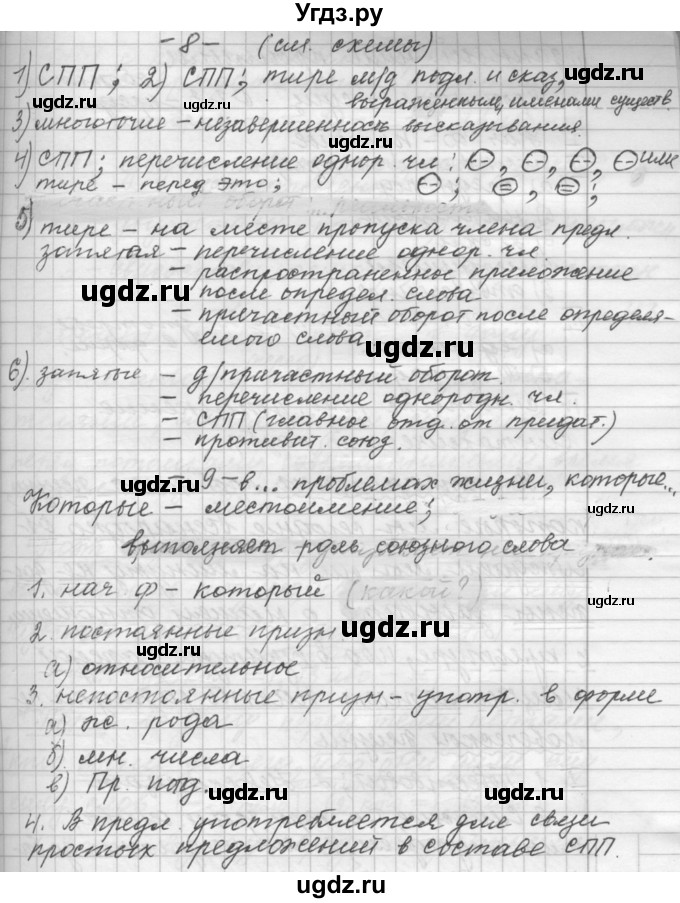 Угдз.ру
-8- (см. схемы)
1) СПП; 2) СПП; тире м/д подл. и сказ,
выраженным, именами существ.
3) многоточие – незавершенность высказывания.
4) СПП; перечисление однор. чл: ⊖, ⊖, ⊖, ⊖ или
тире – перед это; ⊖; ⊜, ⊜;
5) тире – на месте пропуска члена предл.
запятая – перечисление однор. чл.
– распространенные приложение
ugdz.ru после определ. слова ugdz.ru
– причастный оборот после определя-
емого слова ugdz.ru
6). запятые – д/причастный оборот.
– перечисление однородн. чл.
– СПП (главное отд. от придат.)
– противит. союз.
ugdz.ru ugdz.ru
– 9 – в... проблемах жизни, которые...
Которые – местоимение; ugdz.ru
выполняет роль союзного слова
ugdz.ru
1. нач ф – который (какой?)
ugdz.ru
2. постоянные призн ugdz.ru
а) относительное ugdz.ru
3. непостоянные призн – употр. в форме
а) ж. рода ugdz.ru
б) мн. числа
в) Пр. пад. ugdz.ru ugdz.ru
4. В предл. употребляется для связи
простых предложений в составе СПП.
ugdz.ru ugdz.ru
ugdz.ru